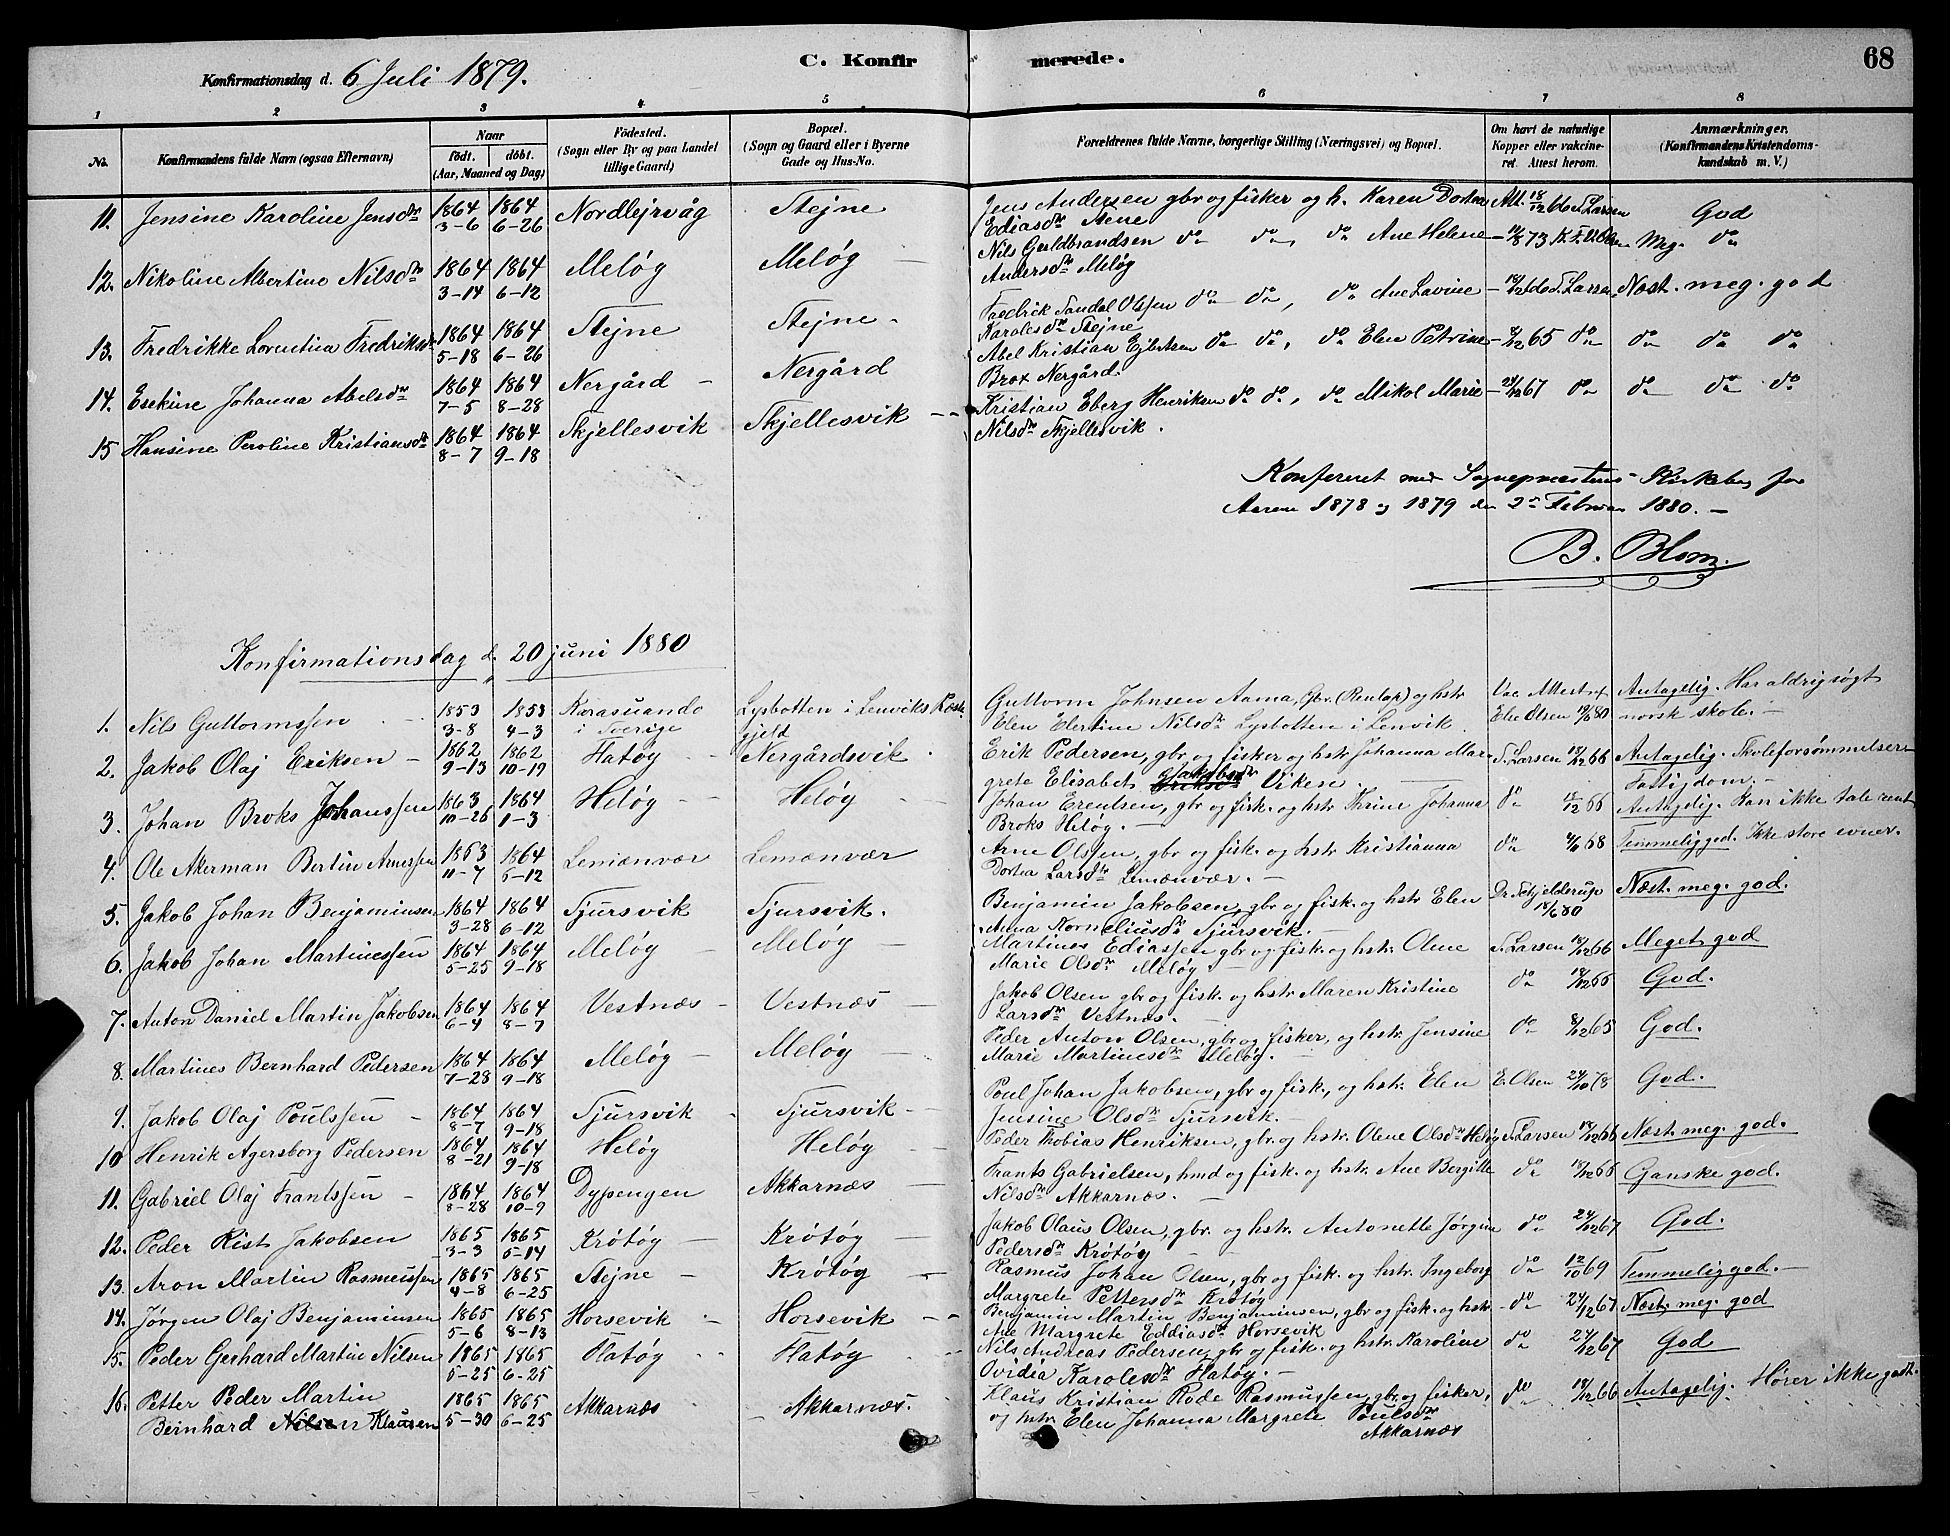 C. Konfirmerede.
68
Konfirmationsdag d. 6 Juli 1879.
1 2 3 4 5 6 7 8
No.
Konfirmandens fulde Navn (ogsaa Efternavn)
Naar
født. døbt.
(Aar, Maaned og Dag)
Fødested.
(Sogn eller By og paa Landet
tillige Gaard)
Bopæl.
(Sogn og Gaard eller i Byerne
Gade og Hus-No.
Forældrenes fulde Navne, borgerlige Stilling (Næringsvei) og Bopæl.
Om havt de naturlige
Kopper eller vakcine-
ret. Attest herom.
Anmærkninger.
(Konfirmandens Kristendoms-
kundskab m. V.)
11. Jensine Karoline Jensdtr 1864 3-6 1864 6-26 Nordlejrvåg Stejne Jens Andersen gbr og fisker og h. Karen Dortea Att. 18/12 66 S. Larsen God
Ediasdtr Stene
12. Nikoline Albertine Nilsdtr 1864 3-14 1864 6-12 Meløg Meløg Nils Guldbrandsen do do, do Ane Helene Meg. do
Andersdtr Meløg
13. Fredrikke Lorentina Fredriksdtr 1864 5-18 1864 6-26 Stejne Stejne Fredrik Sandal Olsen do do, do Ane Lavine 18/12 66 S. Larsen Næst. meg. god
Karolesdtr Stejne
14. Esekine Johanna Abelsdtr 1864 7-5 1864 8-28 Nergård Nergård Abel Kristian Ejbertsen do do, do Elen Petrine 8/12 65 do do do do
Brox Nergård.
15 Hansine Peroline Kristiansdtr 1864 8-7 1864 9-18 Skjellesvik Skjellesvik Kristian Eberg Henriksen do do, do Mikol Marie 24/12 67 do do do do
Nilsdtr Skjellesvik.
Konfereret med Sognepræstens Kirkebog for
Aarene 1878 og 1879 den 2den Februar 1880.
B. Blom.
Konfirmationsdag d. 20 juni 1880
1. Nils Guttormssen 1853 3-8 1853 4-3 Karasuando i Sverige Lysbotten i Lenviks Præstegjeld Guttorm Johnsen Aama, Gbr. (Renlap) og hstr Vac Attest af Antagelig. Har aldrig søgt
Elen Elertine Nilsdtr Lysbotten i Lenvik. Elve Olsen 19/6 80 norsk skole.
2. Jakob Olaj Eriksen 1862 9-13 1862 10-19 Hatøg Nergårdsvik Erik Pedersen, gbr. og fisker og hstr Johanna Mar- S. Larsen 18/12 66 Antagelig. Skoleforsømmelser
grete Elisabet Jakobsdtr Viken. Fattigdom.
3. Johan Broks Johanssen 1863 10-26 1864 1-3 Heløg Heløg Johan Erentsen, gbr og fisk. og hstr Thrine Johanna do 18/12 66 Antagelig. Kan ikke tale rent
Broks Heløg.
4. Ole Akerman Bertin Arnessen 1863 11-7 1864 5-12 Lemænvær Lemænvær Arne Olssen, gbr og fisk. og hstr Kristianna do 68 Temmelig god. Ikke store evner.
Dortea Larsdtr Lemænvær.
5. Jakob Johan Benjaminsen 1864 3-28 1864 6-12 Tjursvik Tjursvik. Benjamin Jakobsen, gbr og fisk. og hstr Elen Dr. Schjelderup 18/6 80 Næst. meg. god.
Anna Korneliusdtr Tjursvik.
6. Jakob Johan Martinessen 1864 5-25 1864 9-18 Meløg Meløg Martines Ediassen gbr og fisk. og hstr. Oline S. Larsen 18/12 66 Meget god
Marie Olsdtr Meløg.
7. Anton Daniel Martin Jakobsen 1864 6-4 1864 8-7 Vestnæs Vestnæs Jakob Olsen gbr og fisk. og hstr Maren Kristine do 18/12 66 God.
Larsdtr Vestnæs.
8. Martines Bernhard Pedersen 1864 7-28 1864 9-18 Meløg Meløg Peder Anton Olsen, gbr og fisker, og hstr. Jensine do 8/12 65 God.
Marie Martinesdtr Meløg.
9. Jakob Olaj Poulssen 1864 8-7 1864 9-18 Tjursvik Tjursvik Poul Johan Jakobsen, gbr og fisk., og hstr. Elen E. Olsen 24/10 78 God.
Jensine Olsdtr Tjursvik.
10 Henrik Agersborg Pedersen 1864 8-21 1864 9-18 Heløg Heløg Peder Tobias Henriksen, gbr. og hstr. Olene Olsdtr Heløg S. Larsen 18/12 66 Næst. meg. god.
11. Gabriel Olaj Frantssen 1864 8-28 1864 10-9 Dypengen Akkarnæs Frants Gabrielsen, hmd og fisk. og hstr. Ane Bergitte do 18/12 66 Ganske god.
Nilsdtr Akkarnæs.
12. Peder Rist Jakobsen 1865 3-3 1865 5-14 Krøtøg Krøtøg Jakob Olaus Olsen, gbr. og hstr. Antonette Jørgine do 24/12 67 God.
Pedersdtr Krøtøg
13. Aron Martin Rasmussen 1865 4-8 1865 6-25 Stejne Krøtøg Rasmus Johan Olsen, gbr og fisk. og hstr. Ingeborg do 12/10 69 Temmelig god.
Margrete Pettersdtr Krøtøg
14. Jørgen Olaj Benjaminsen 1865 5-6 1865 8-13 Horsevik Horsevik Benjamin Martin Benjaminsen, gbr og fisk. og hstr. do 24/12 67 Næst. meg. god
Ane Margrete Eddiasdtr Horsevik
15. Peder Gerhard Martin Nilsen 1865 5-25 1865 6-25 Hatøg Hatøg Nils Andreas Pedersen, gbr og fisk. og hstr. Karoline do 24/12 67 God
Ovidia Karolesdtr Hatøg.
16. Petter Peder Martin 1865 5-30 1865 6-25 Akkarnæs Akkarnæs. Klaus Kristian Rode Rasmussen, gbr. og fisker, do 18/12 66 Antagelig. Hører ikke godt.
Bernhard Nilsen Klausen og hstr. Elen Johanna Margrete Poulsdtr
Akkarnæs